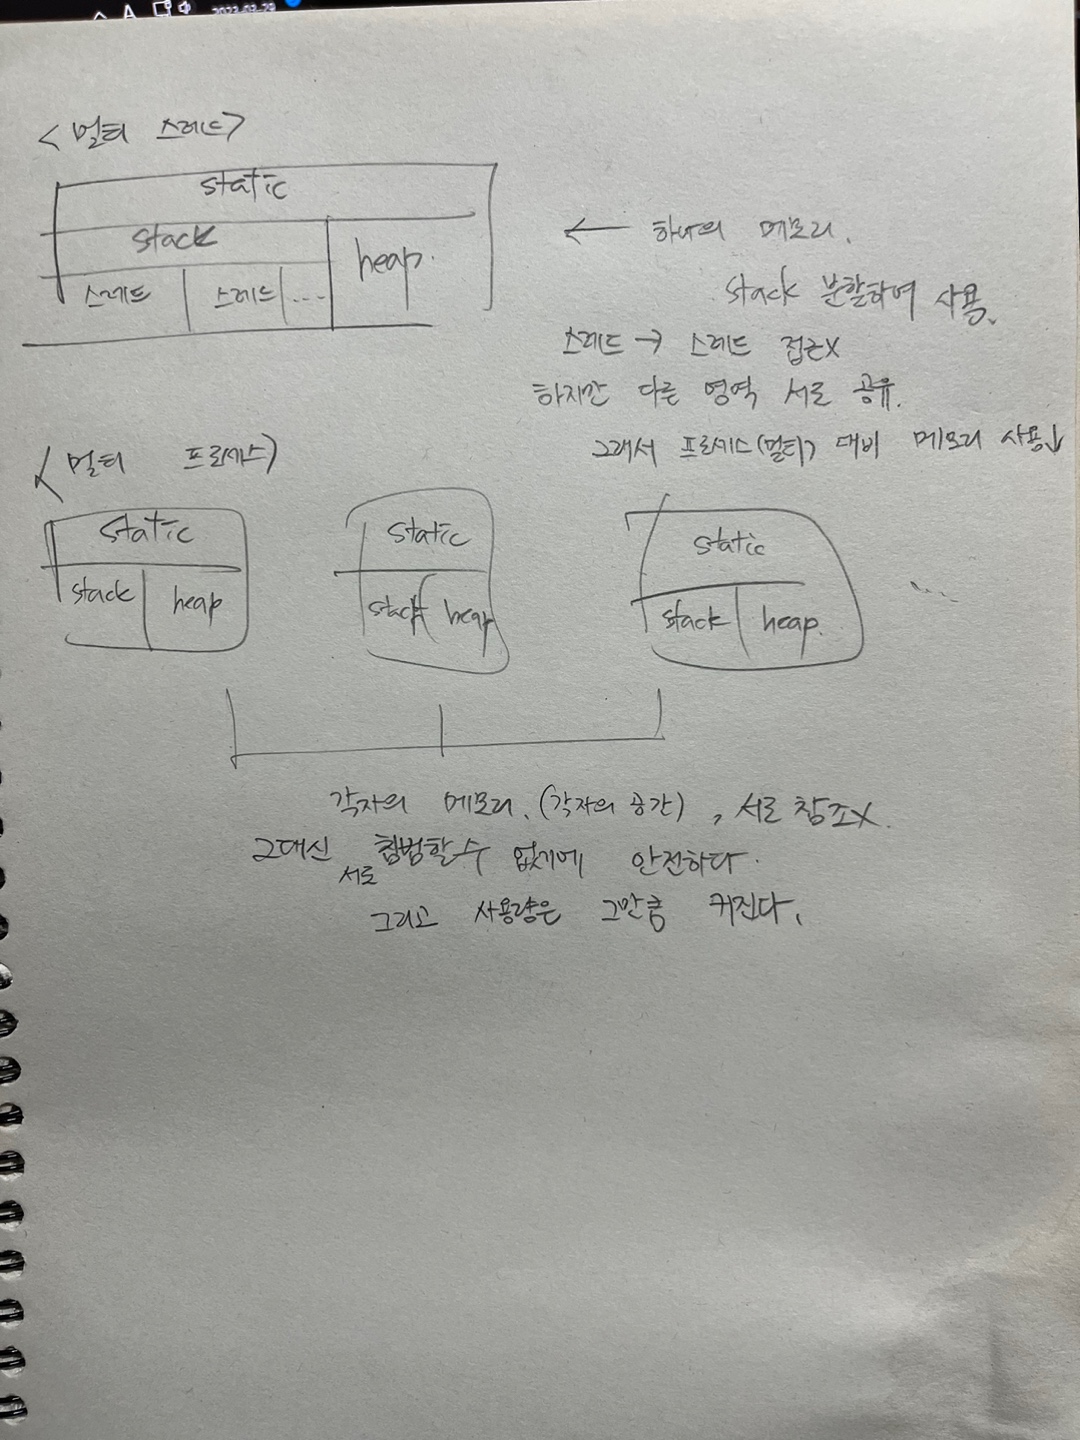 <멀티 스레드>
static
stack
heap.
스레드 스레드 ...
← 하나의 메모리.
stack 분할하여 사용.
스레드 → 스레드 접근X
하지만 다른 영역 서로 공유.
그래서 프로세스(멀티) 대비 메모리 사용↓
<멀티 프로세스>
static
stack heap
static
stack heap
static
stack heap.
.....
각자의 메모리. (각자의 공간), 서로 참조X.
그대신 서로 침범할수 없기에 안전하다.
그리고 사용량은 그만큼 커진다.